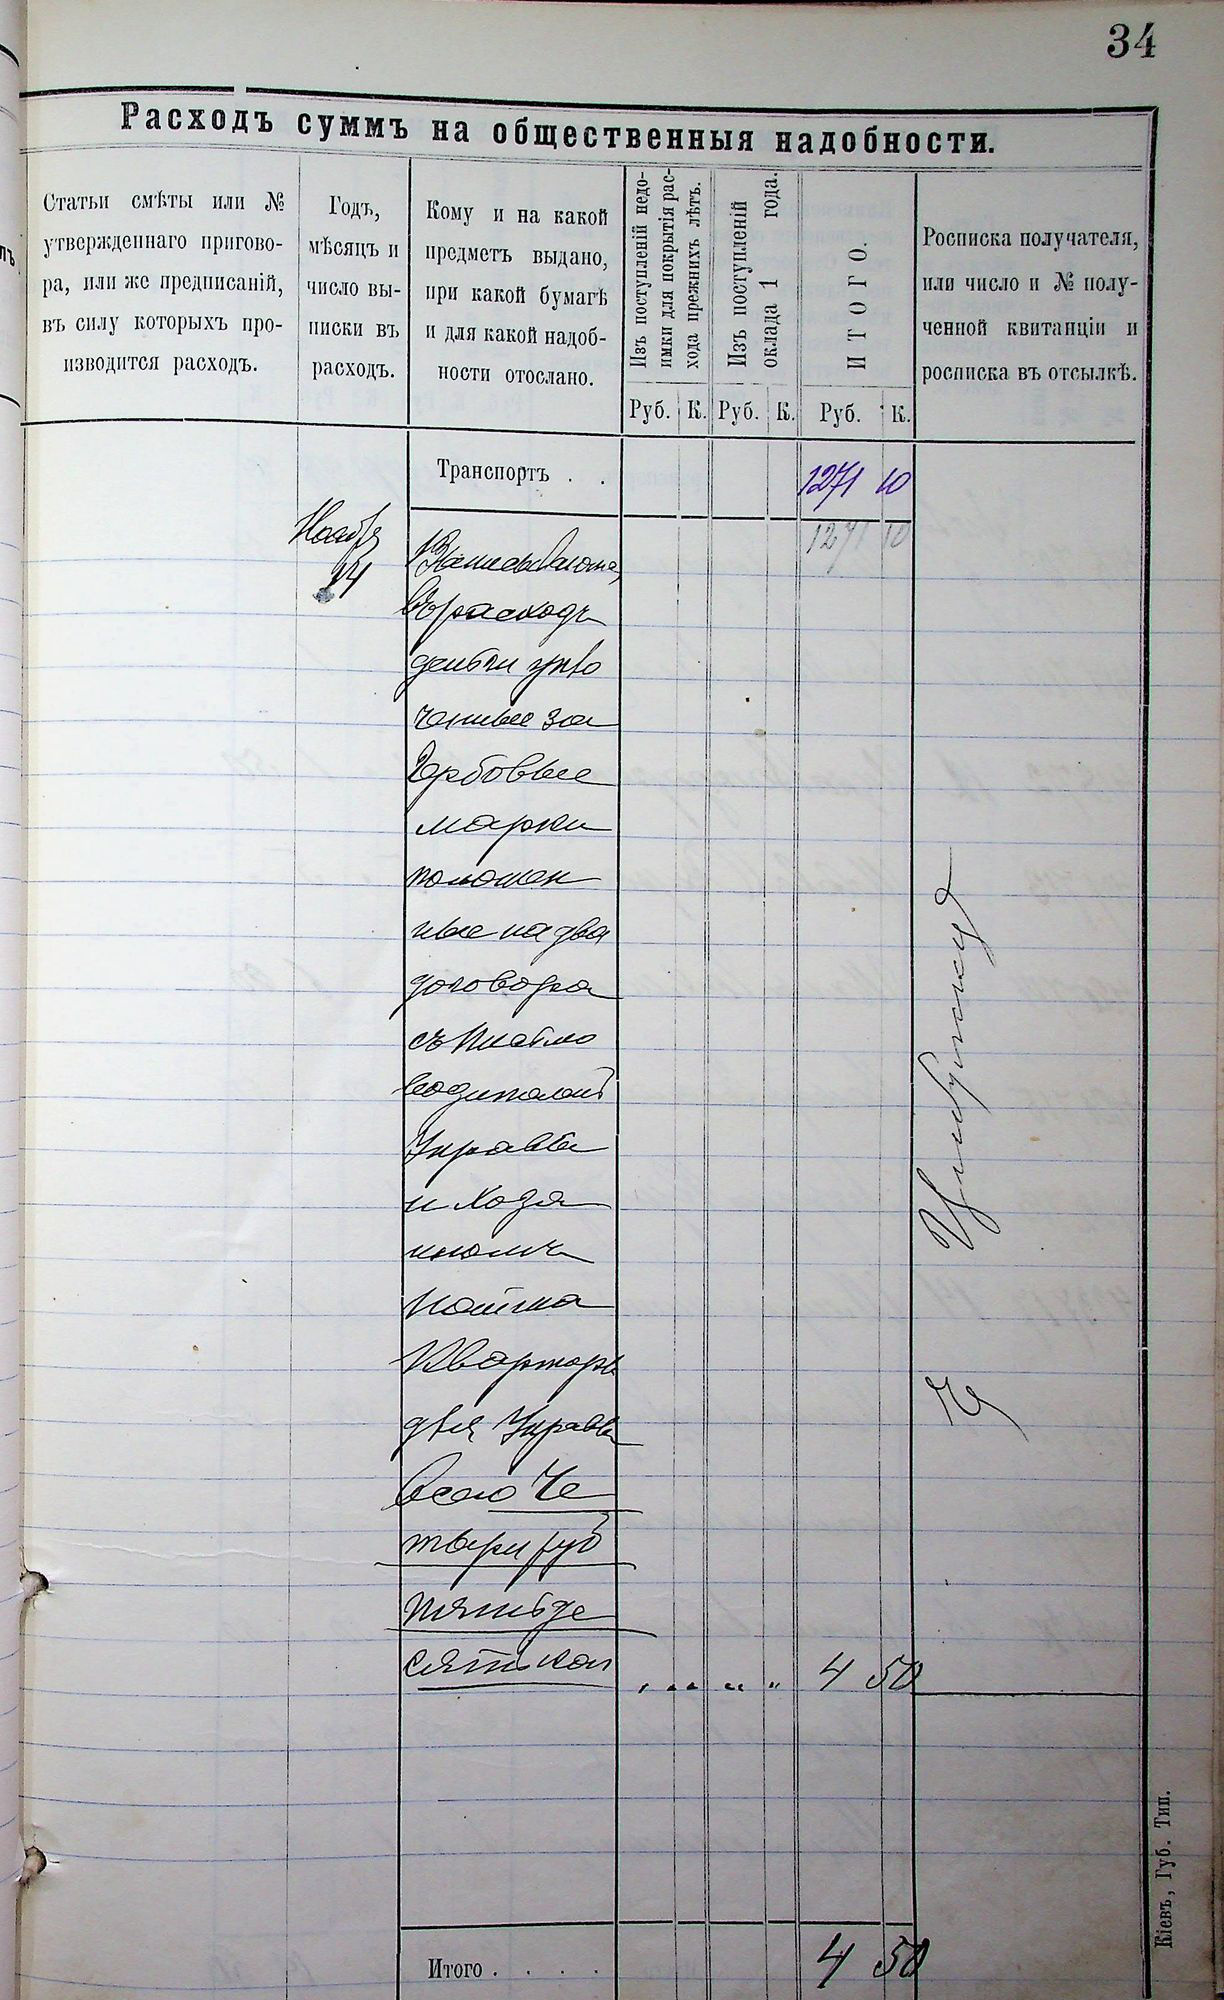 34
Расходъ суммъ на общественныя надобности.
Статьи смѣты или №
утвержденнаго пригово-
ра, или же предписаній,
въ силу которыхъ про-
изводится расходъ.
Годъ,
мѣсяцъ и
число вы-
писки въ
расходъ.
Кому и на какой
предметъ выдано,
при какой бумагѣ
и для какой надоб-
ности отослано.
Изъ поступленій недо-
имки для покрытія рас-
хода прежнихъ лѣтъ.
Изъ поступленій
оклада 1 года.
ИТОГО.
Росписка получателя,
или число и № полу-
ченной квитанціи и
росписка въ отсылкѣ.
Руб. К. Руб. К. Руб. К.
Транспортъ . . 1271 10
1271 10
Ноябр
14
въ расходъ
деньги упло
ченные за
Гербовые
марки
положен
ные на два
договора
съ
Управы
и Хозя
иномъ
найма
Квартиры
для Управы
всего Че
тыри руб
пятьде
сятъ коп , „ „ „ 4 50
Итого . . . . 4 50
Кіевъ, Губ. Тип.